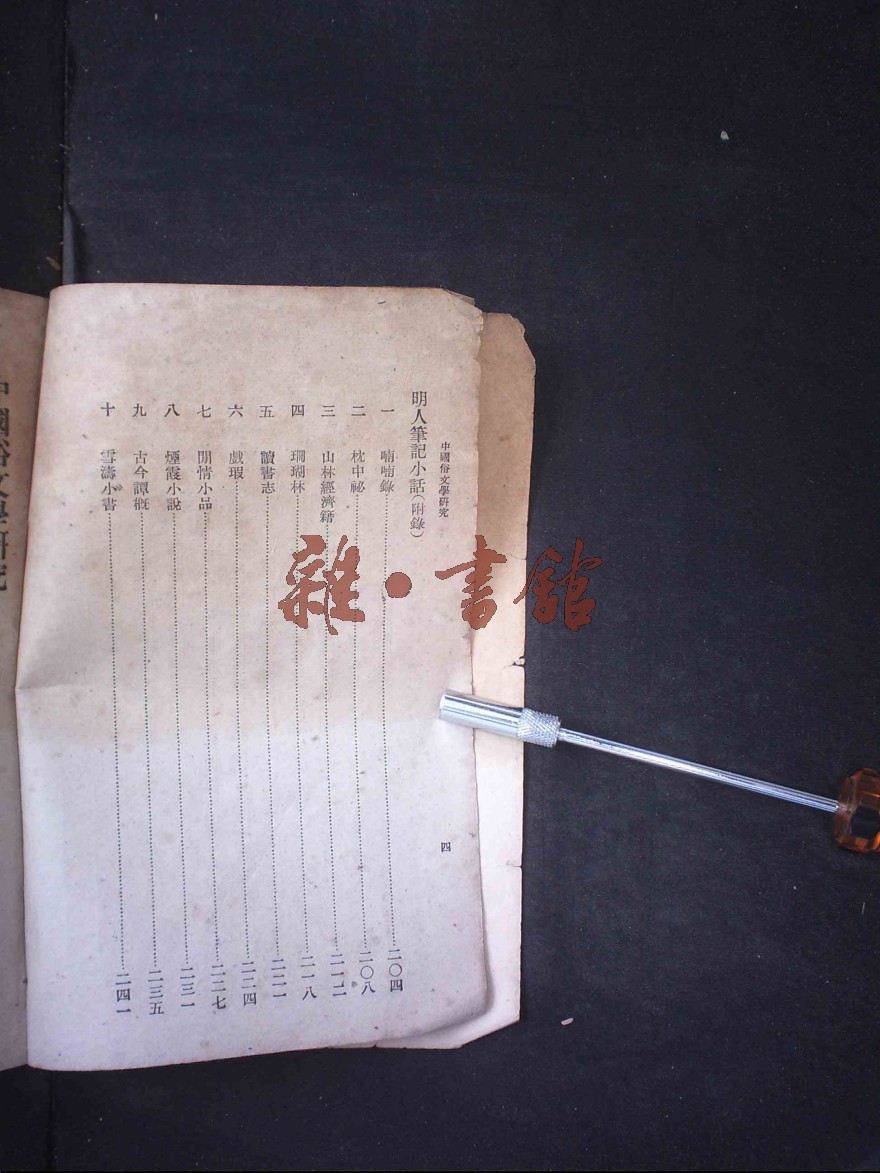 中國俗文學研究
明人筆記小話(附錄)
一 喃喃錄 二〇四
二 枕中祕 二〇八
三 山林經濟籍 二一二
四 珊瑚林 二一八
五 讀書志 二二一
六 戲瑕 二二四
七 閒情小品 二二七
八 煙霞小說 二三一
九 古今譚概 二三五
十 雪濤小書 二四一
四
中國俗文學研究
雜·書館